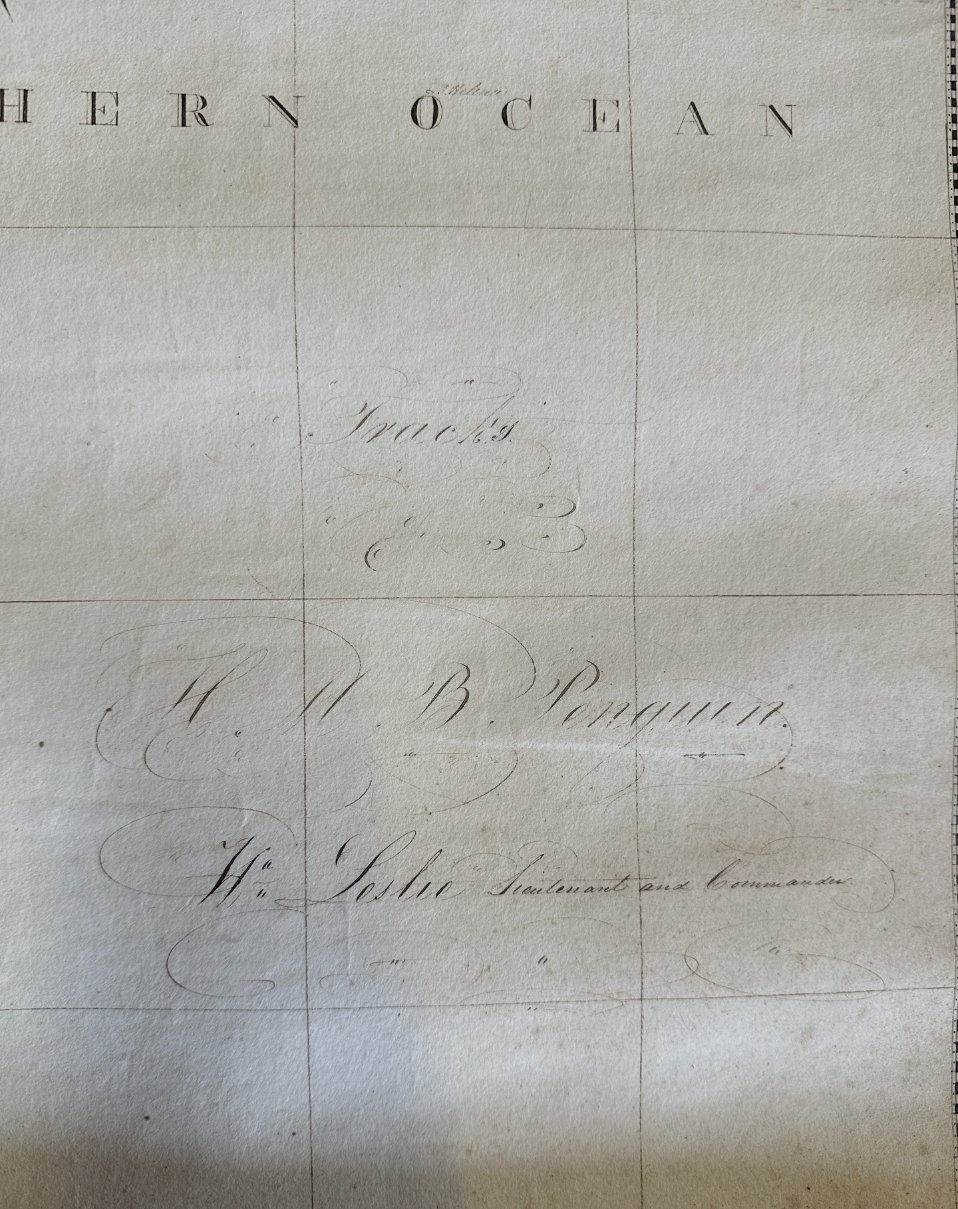 HERN OCEAN
Tracks
H. M. B. Penguin.
Wm Leslie Lieutenant and Commander